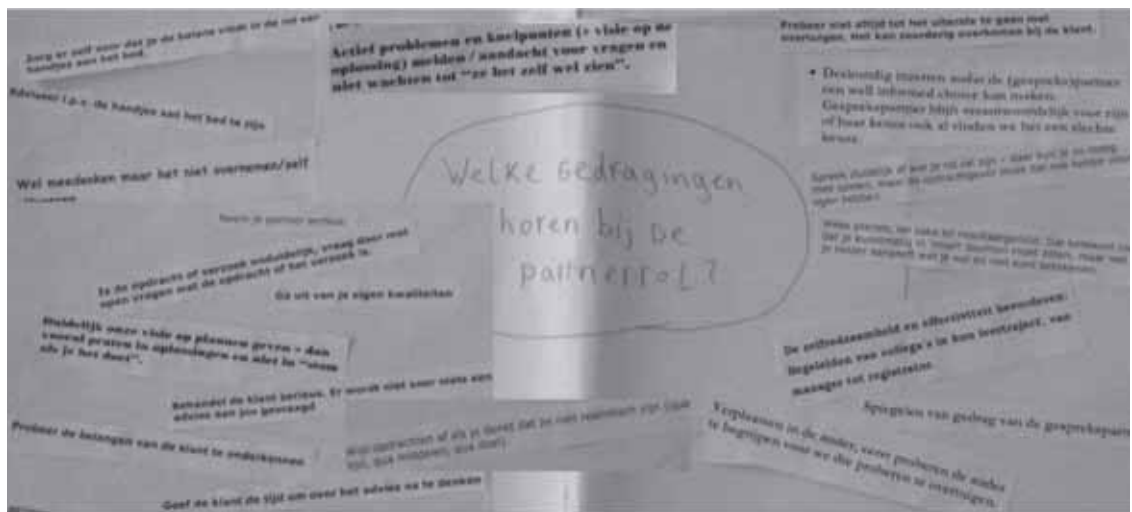 Zorg er zelf voor dat je de balans vindt in de rol van
handjes aan het bed.
Adviseur i.p.v. de handjes aan het bed te zijn
Wel meedenken maar het niet overnemen/zelf
Neem je partner serieus
Is de opdracht of verzoek onduidelijk, vraag door met
open vragen wat de opdracht of het verzoek is.
Ga uit van je eigen kwaliteiten
Duidelijk onze visie op plannen geven + dan
vooral praten in oplossingen en niet in "stom
als je het doet".
Behandel de klant serieus. Er wordt niet voor niets een
advies aan jou gevraagd
Probeer de belangen van de klant te onderkennen
Geef de klant de tijd om over het advies na te denken
Actief problemen en knelpunten (+ visie op de
oplossing) melden / aandacht voor vragen en
niet wachten tot "ze het zelf wel zien".
Welke gedragingen
horen bij de
partnerrol?
Wijs opdrachten af als je denkt dat ze niet realistisch zijn (qua
tijd, qua middelen, qua doel)
Probeer niet altijd tot het uiterste te gaan met
overtuigen. Het kan zeurderig overkomen bij de klant.
• Deskundig inzetten zodat de (gespreks)partner
een well informed choice kan maken.
Gesprekspartner blijft verantwoordelijk voor zijn
of haar keuze ook al vinden we het een slechte
keuze.
Spreek duidelijk af wat je rol zal zijn
De zelfredzaamheid en effectiviteit bevorderen:
Begeleiden van collega's in hun leertraject, van
manager tot registrator.
Spiegelen van gedrag van de gesprekspartner
Verplaatsen in de ander, eerst proberen de ander
te begrijpen voor we die proberen te overtuigen.